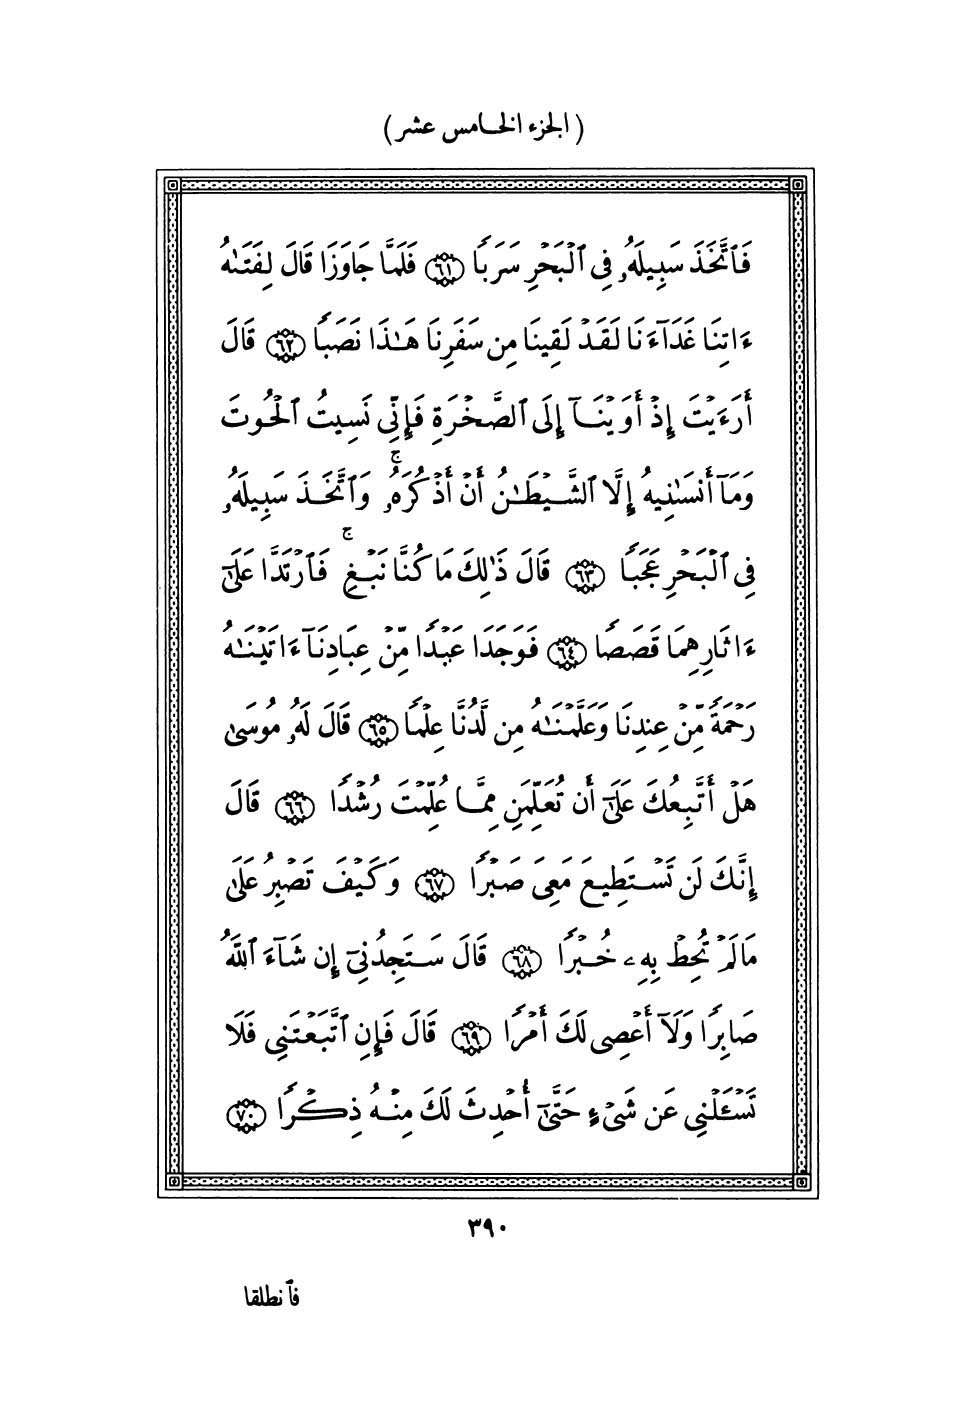 (الجزء الخامس عشر)
فَٱتَّخَذَ سَبِيلَهُۥ فِى ٱلْبَحْرِ سَرَبًا ﴿٦١﴾ فَلَمَّا جَاوَزَا قَالَ لِفَتَىٰهُ
ءَاتِنَا غَدَآءَنَا لَقَدْ لَقِينَا مِن سَفَرِنَا هَـٰذَا نَصَبًا ﴿٦٢﴾ قَالَ
أَرَءَيْتَ إِذْ أَوَيْنَآ إِلَى ٱلصَّخْرَةِ فَإِنِّى نَسِيتُ ٱلْحُوتَ
وَمَآ أَنسَىٰنِيهُ إِلَّا ٱلشَّيْطَـٰنُ أَنْ أَذْكُرَهُۥ ۚ وَٱتَّخَذَ سَبِيلَهُۥ
فِى ٱلْبَحْرِ عَجَبًا ﴿٦٣﴾ قَالَ ذَٰلِكَ مَا كُنَّا نَبْغِ ۚ فَٱرْتَدَّا عَلَىٰٓ
ءَاثَارِهِمَا قَصَصًا ﴿٦٤﴾ فَوَجَدَا عَبْدًا مِّنْ عِبَادِنَآ ءَاتَيْنَـٰهُ
رَحْمَةً مِّنْ عِندِنَا وَعَلَّمْنَـٰهُ مِن لَّدُنَّا عِلْمًا ﴿٦٥﴾ قَالَ لَهُۥ مُوسَىٰ
هَلْ أَتَّبِعُكَ عَلَىٰٓ أَن تُعَلِّمَنِ مِمَّا عُلِّمْتَ رُشْدًا ﴿٦٦﴾ قَالَ
إِنَّكَ لَن تَسْتَطِيعَ مَعِىَ صَبْرًا ﴿٦٧﴾ وَكَيْفَ تَصْبِرُ عَلَىٰ
مَا لَمْ تُحِطْ بِهِۦ خُبْرًا ﴿٦٨﴾ قَالَ سَتَجِدُنِىٓ إِن شَآءَ ٱللَّهُ
صَابِرًا وَلَآ أَعْصِى لَكَ أَمْرًا ﴿٦٩﴾ قَالَ فَإِنِ ٱتَّبَعْتَنِى فَلَا
تَسْـَٔلْنِى عَن شَىْءٍ حَتَّىٰٓ أُحْدِثَ لَكَ مِنْهُ ذِكْرًا ﴿٧٠﴾
٣٩٠
فٱنطلقا